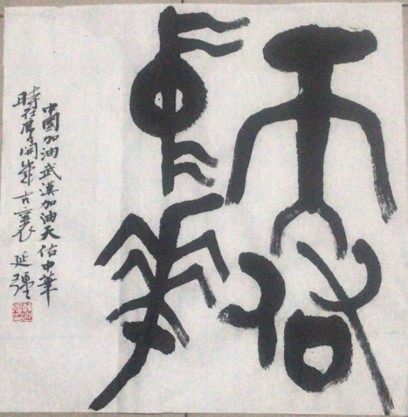 天佑
中華
中國加油武漢加油天佑中華
時在庚子開歲古襄延強